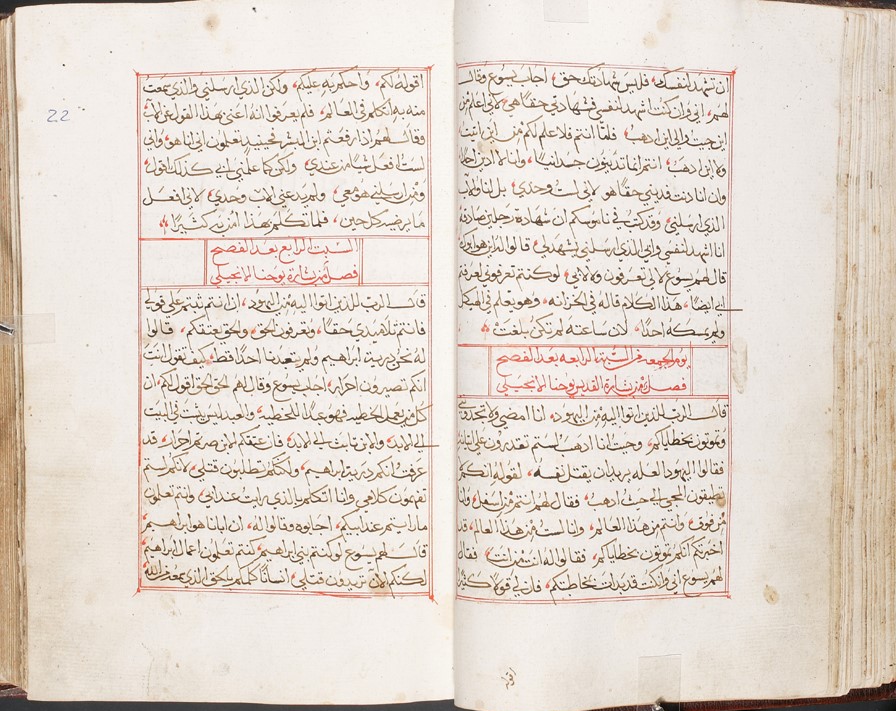 ان تشهد لنفسك فليس شهادتك حق اجاب يسوع وقال
لهم اني وان كنت اشهد لنفسي فشهادتي حقا هي لاني اعلم من
اين جيت والى اين اذهب فاما انتم فلا علم لكم من اين اتيت
ولا اين اذهب انتم انما تدينون جسدانيا وانا لا ادين احدا
وان انا دنت فديني حقا هو لاني لست وحدي بل انا والاب
الذي ارسلني وقد كتب في ناموسكم ان شهادة رجلين صادقة
انا اشهد لنفسي وابي الذي ارسلني يشهد لي قالوا له اين هو ابوك
قال لهم يسوع لا لي تعرفون ولا لابي لو كنتم تعرفوني لعرفتم
ابي ايضا هذا الكلام قاله في الخزانه وهو يعلم في الهيكل
ولم يمسكه احدا لان ساعته لم تكن بلغت
يوم الجمعه من السبة الرابعه بعد الفصح
فصل من بشارة القديس يوحنا الانجيلي
قال الرب للذين اتوا اليه من اليهود انا امضي
وتموتون بخطاياكم وحيث انا اذهب لستم تقدرون على اتيانه
فقالوا اليهود العله يريد ان يقتل نفسه لقوله انكم
تطيقون المجي الى حيث اذهب فقال لهم انتم من اسفل وانا
من فوق وانتم من هذا العالم وانا لست من هذا العالم قد
اخبرتكم انكم تموتون بخطاياكم فقالوا له انت من انت فقال
لهم يسوع اني وان كنت قد بدات بمخاطبتكم فلن لي قولا كثيرا
اقوله
22
اقوله لكم واحكم به عليكم ولكن الذي ارسلني والذي سمعت
منه به اتكلم في العالم فلم يعرفوا انه اعنى بهذا القول عن الاب
وقال لهم اذا رفعتم ابن البشر فحينيذ تعلمون اني انا هو واني
لست افعل شيا من عندي ولكن كما علمني ابي كذلك اقول
ومن ارسلني هو معي ولم يدعني الاب وحدي لاني افعل
ما يرضيه كل حين فلما تكلم بهذا امن به كثيرا
السبت الرابع بعد الفصح
فصل من بشارة يوحنا الانجيلي
قال الرب للذين اتوا اليه من اليهود ان انتم ثبتم على قولي
فانتم تلاميذي حقا وتعرفون الحق والحق يعتقكم قالوا
له نحن ذرية ابراهيم ولم يتعبدنا احدا قط كيف تقول انت
انكم تصيرون احرار اجاب يسوع وقال لهم الحق الحق اقول لكم ان
كل من يعمل الخطيه فهو عبدا للخطيه والعبد ليس يثبت في البيت
الى الابد والابن ثابت الى الابد فان عتقكم الابن صرتم احرار قد
عرفت انكم ذرية ابراهيم ولكنكم تطلبون قتلي لانكم لستم
تفهمون كلامي وانا اتكلم بالذي رايت عند ابي وانتم تعملون
ما رايتم عند ابيكم اجابوه وقالوا له ان ابانا هو ابراهيم
قال لهم يسوع لو كنتم بني ابراهيم كنتم تعملون اعمال ابراهيم
لكنكم الان تريدون قتلي انسانا كلمكم بالحق الذي سمعه من الله